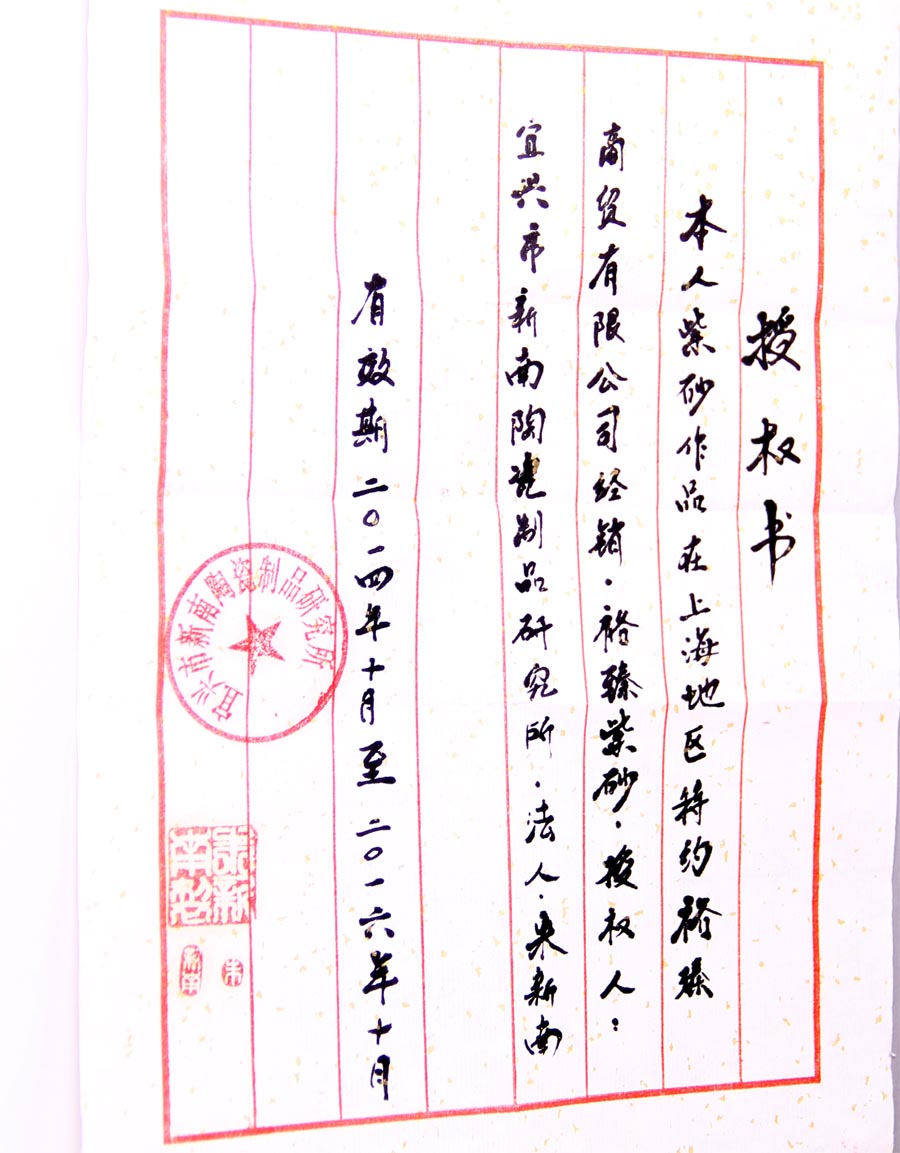 授权书
本人紫砂作品在上海地区特约裕臻
商贸有限公司经销.裕臻紫砂.授权人:
宜兴市新南陶瓷制品研究所.法人.朱新南
有效期二〇一四年十月至二〇一六年十月
宜兴市新南陶瓷制品研究所
朱新南
朱
新南